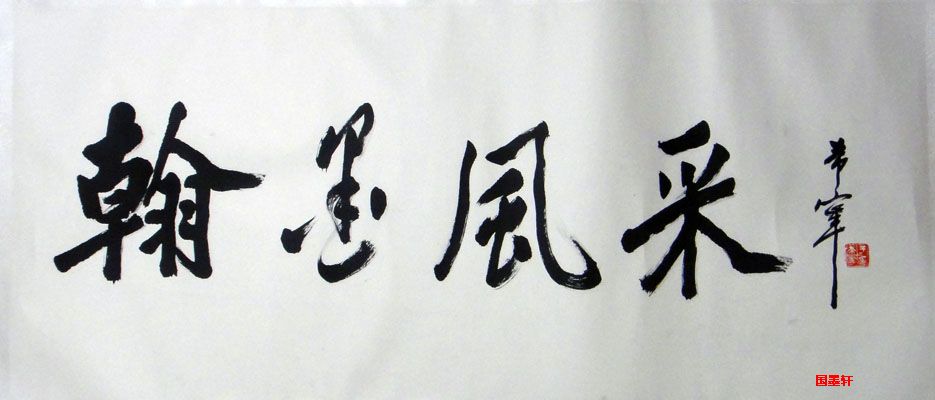 翰墨風采
国墨轩